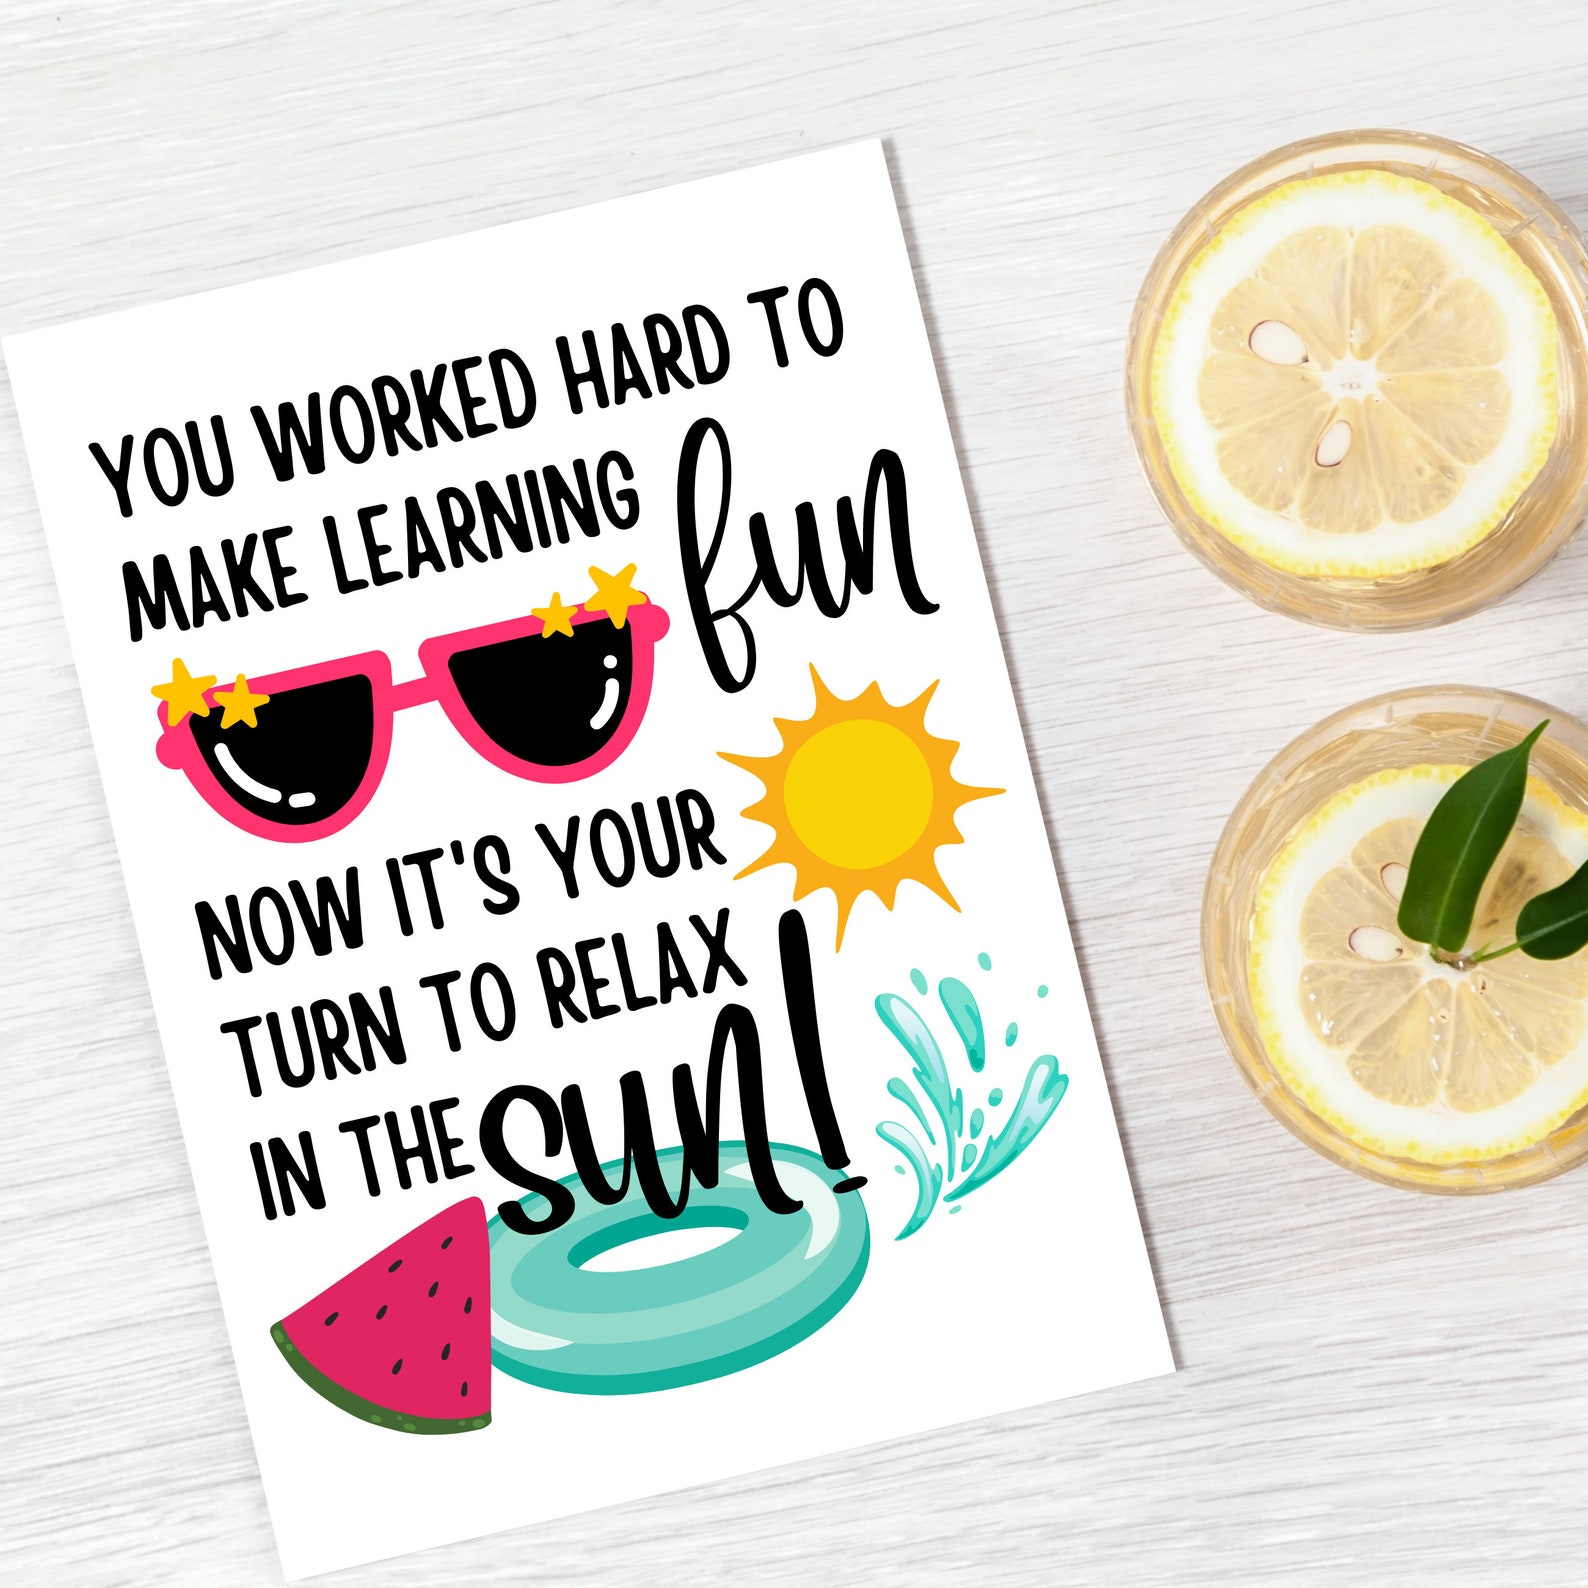 YOU WORKED HARD TO
MAKE LEARNING fun
NOW IT'S YOUR
TURN TO RELAX
IN THE sun!